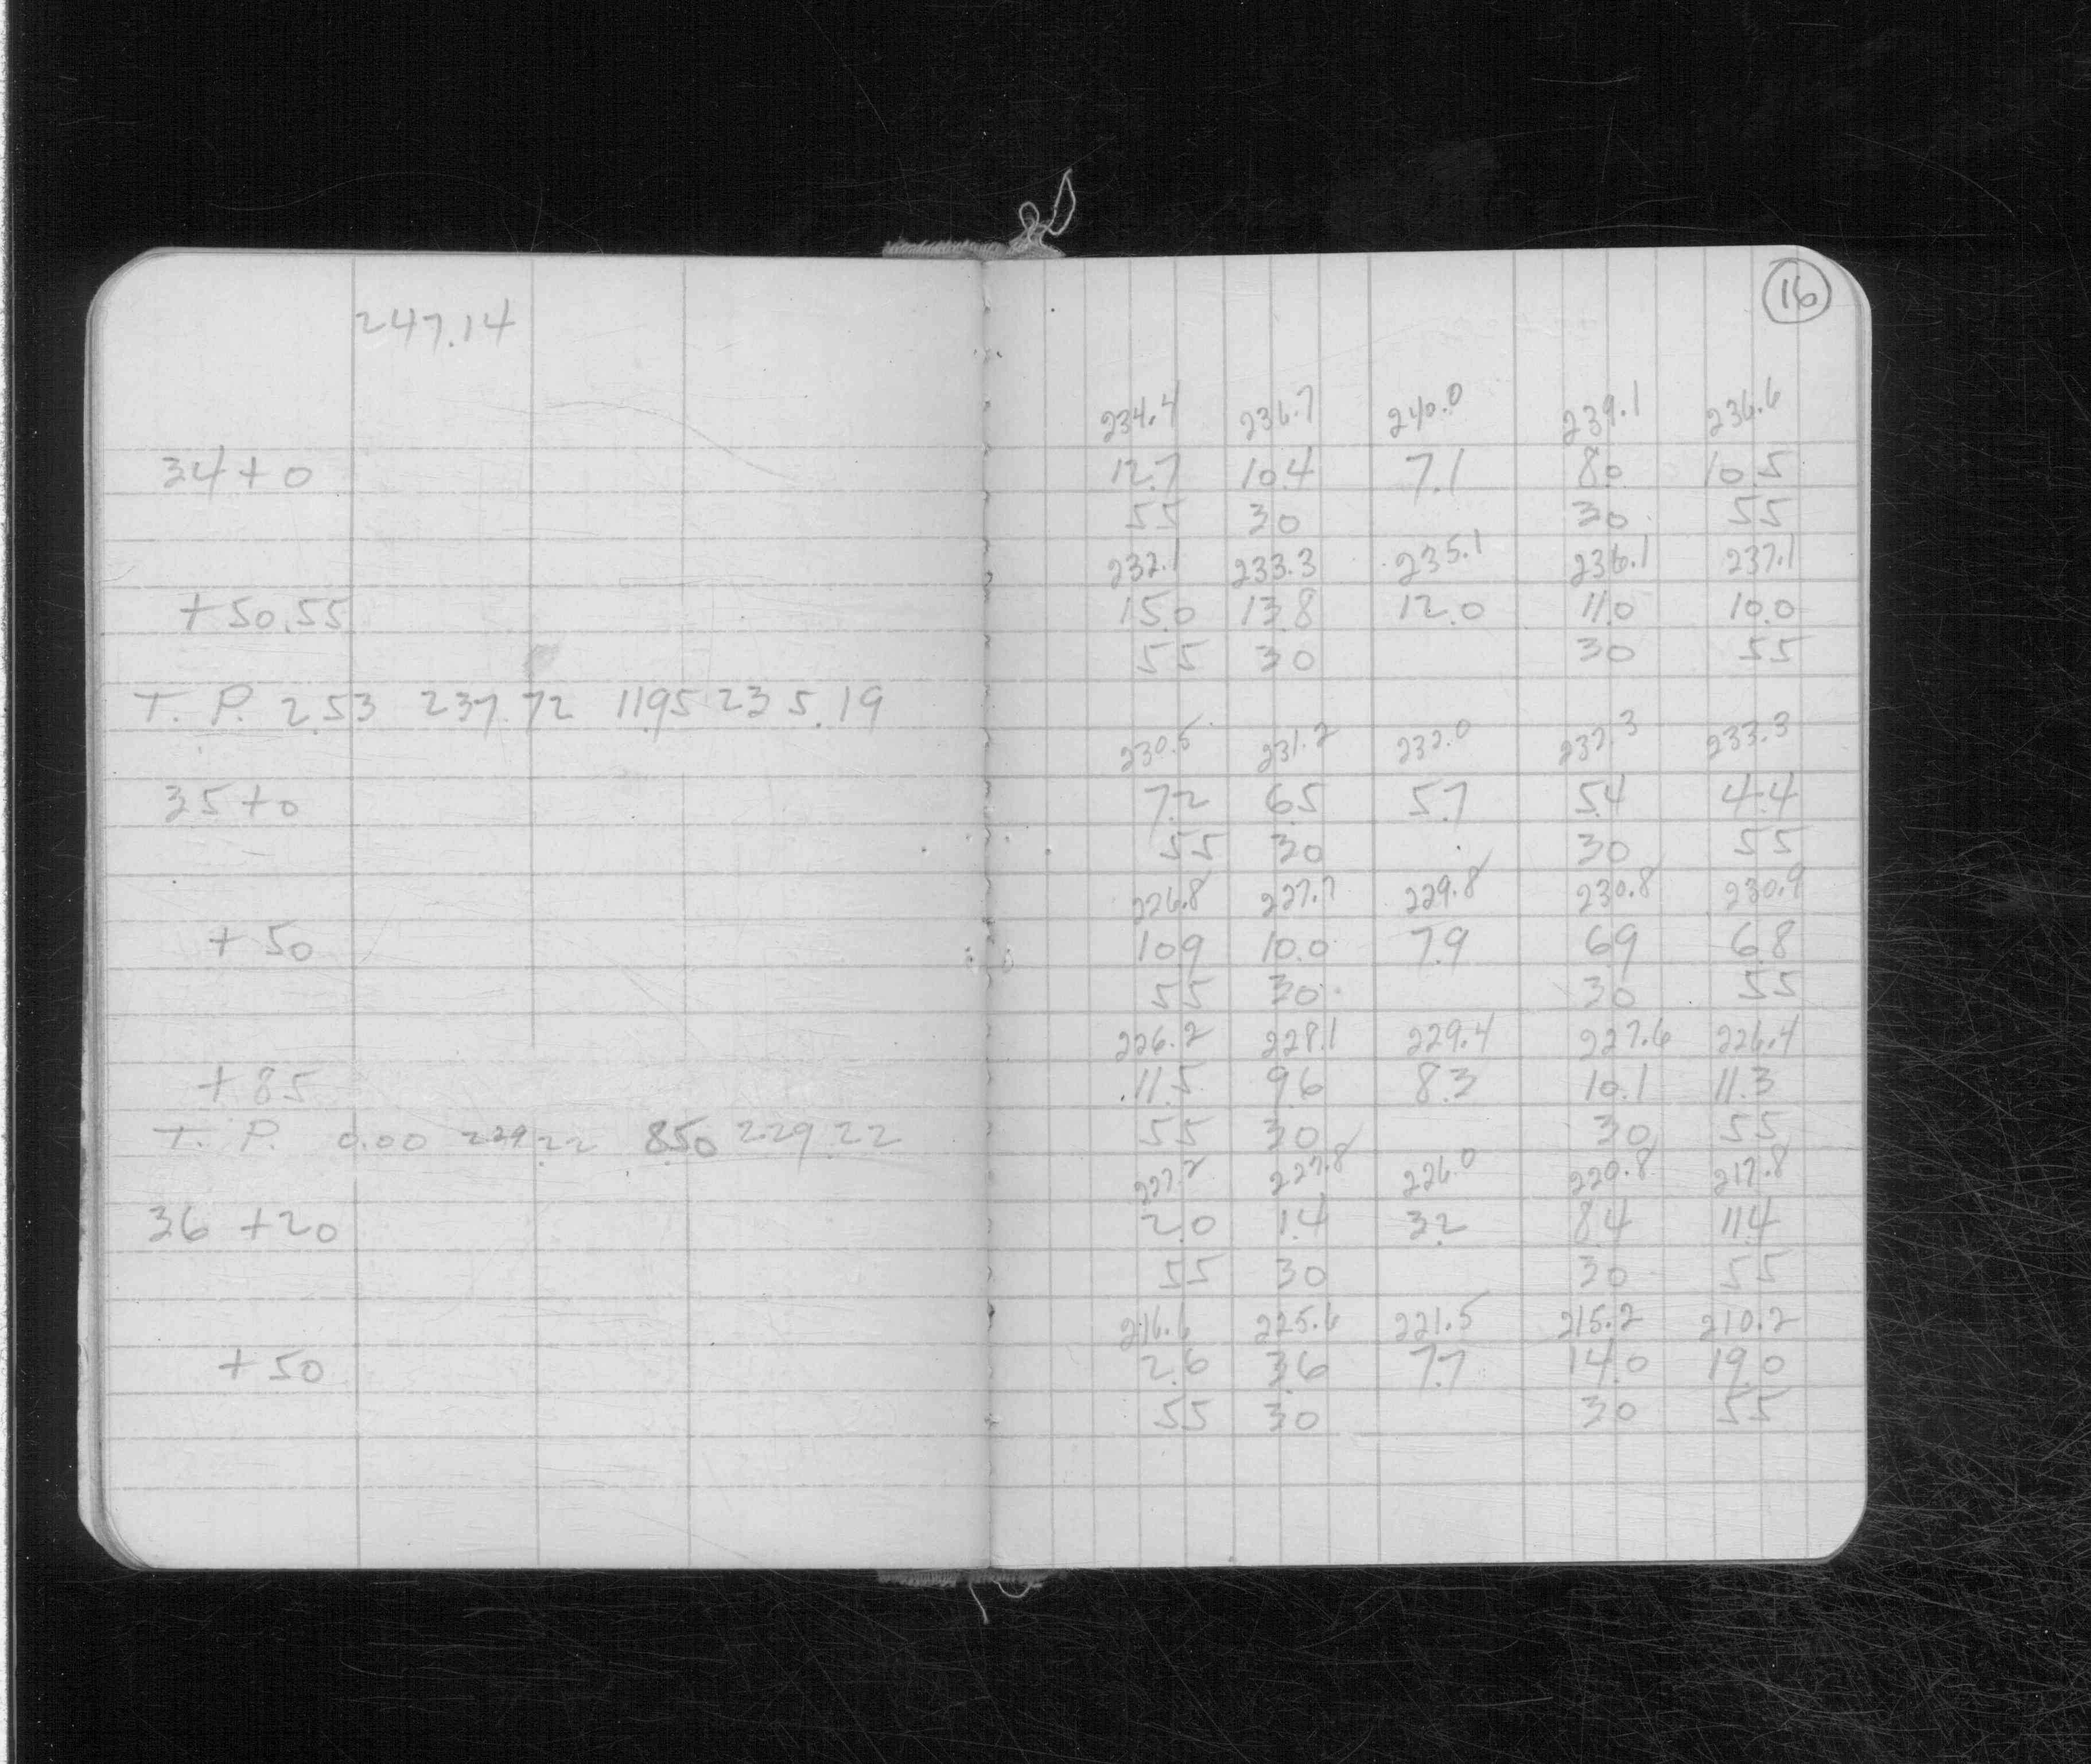 16
247.14
234.4 236.7 240.0 239.1 236.6
34+0 12.7 10.4 7.1 8.0 10.5
55 30 30 55
232.1 233.3 235.1 236.1 237.1
+50.55 15.0 13.8 12.0 11.0 10.0
55 30 30 55
T. P. 2.53 237.72 11.95 235.19
230.5 231.2 232.0 232.3 233.3
35+0 7.2 6.5 5.7 5.4 4.4
55 30 30 55
226.8 227.7 229.8 230.8 230.9
+50 10.9 10.0 7.9 6.9 6.8
55 30 30 55
226.2 228.1 229.4 227.6 226.4
+85 11.5 9.6 8.3 10.1 11.3
T. P. 0.00 229.22 8.50 229.22 55 30 30 55
227.2 227.8 226.0 220.8 217.8
36 +20 2.0 1.4 3.2 8.4 11.4
55 30 30 55
216.6 225.6 221.5 215.2 210.2
+50 2.6 3.6 7.7 14.0 19.0
55 30 30 55